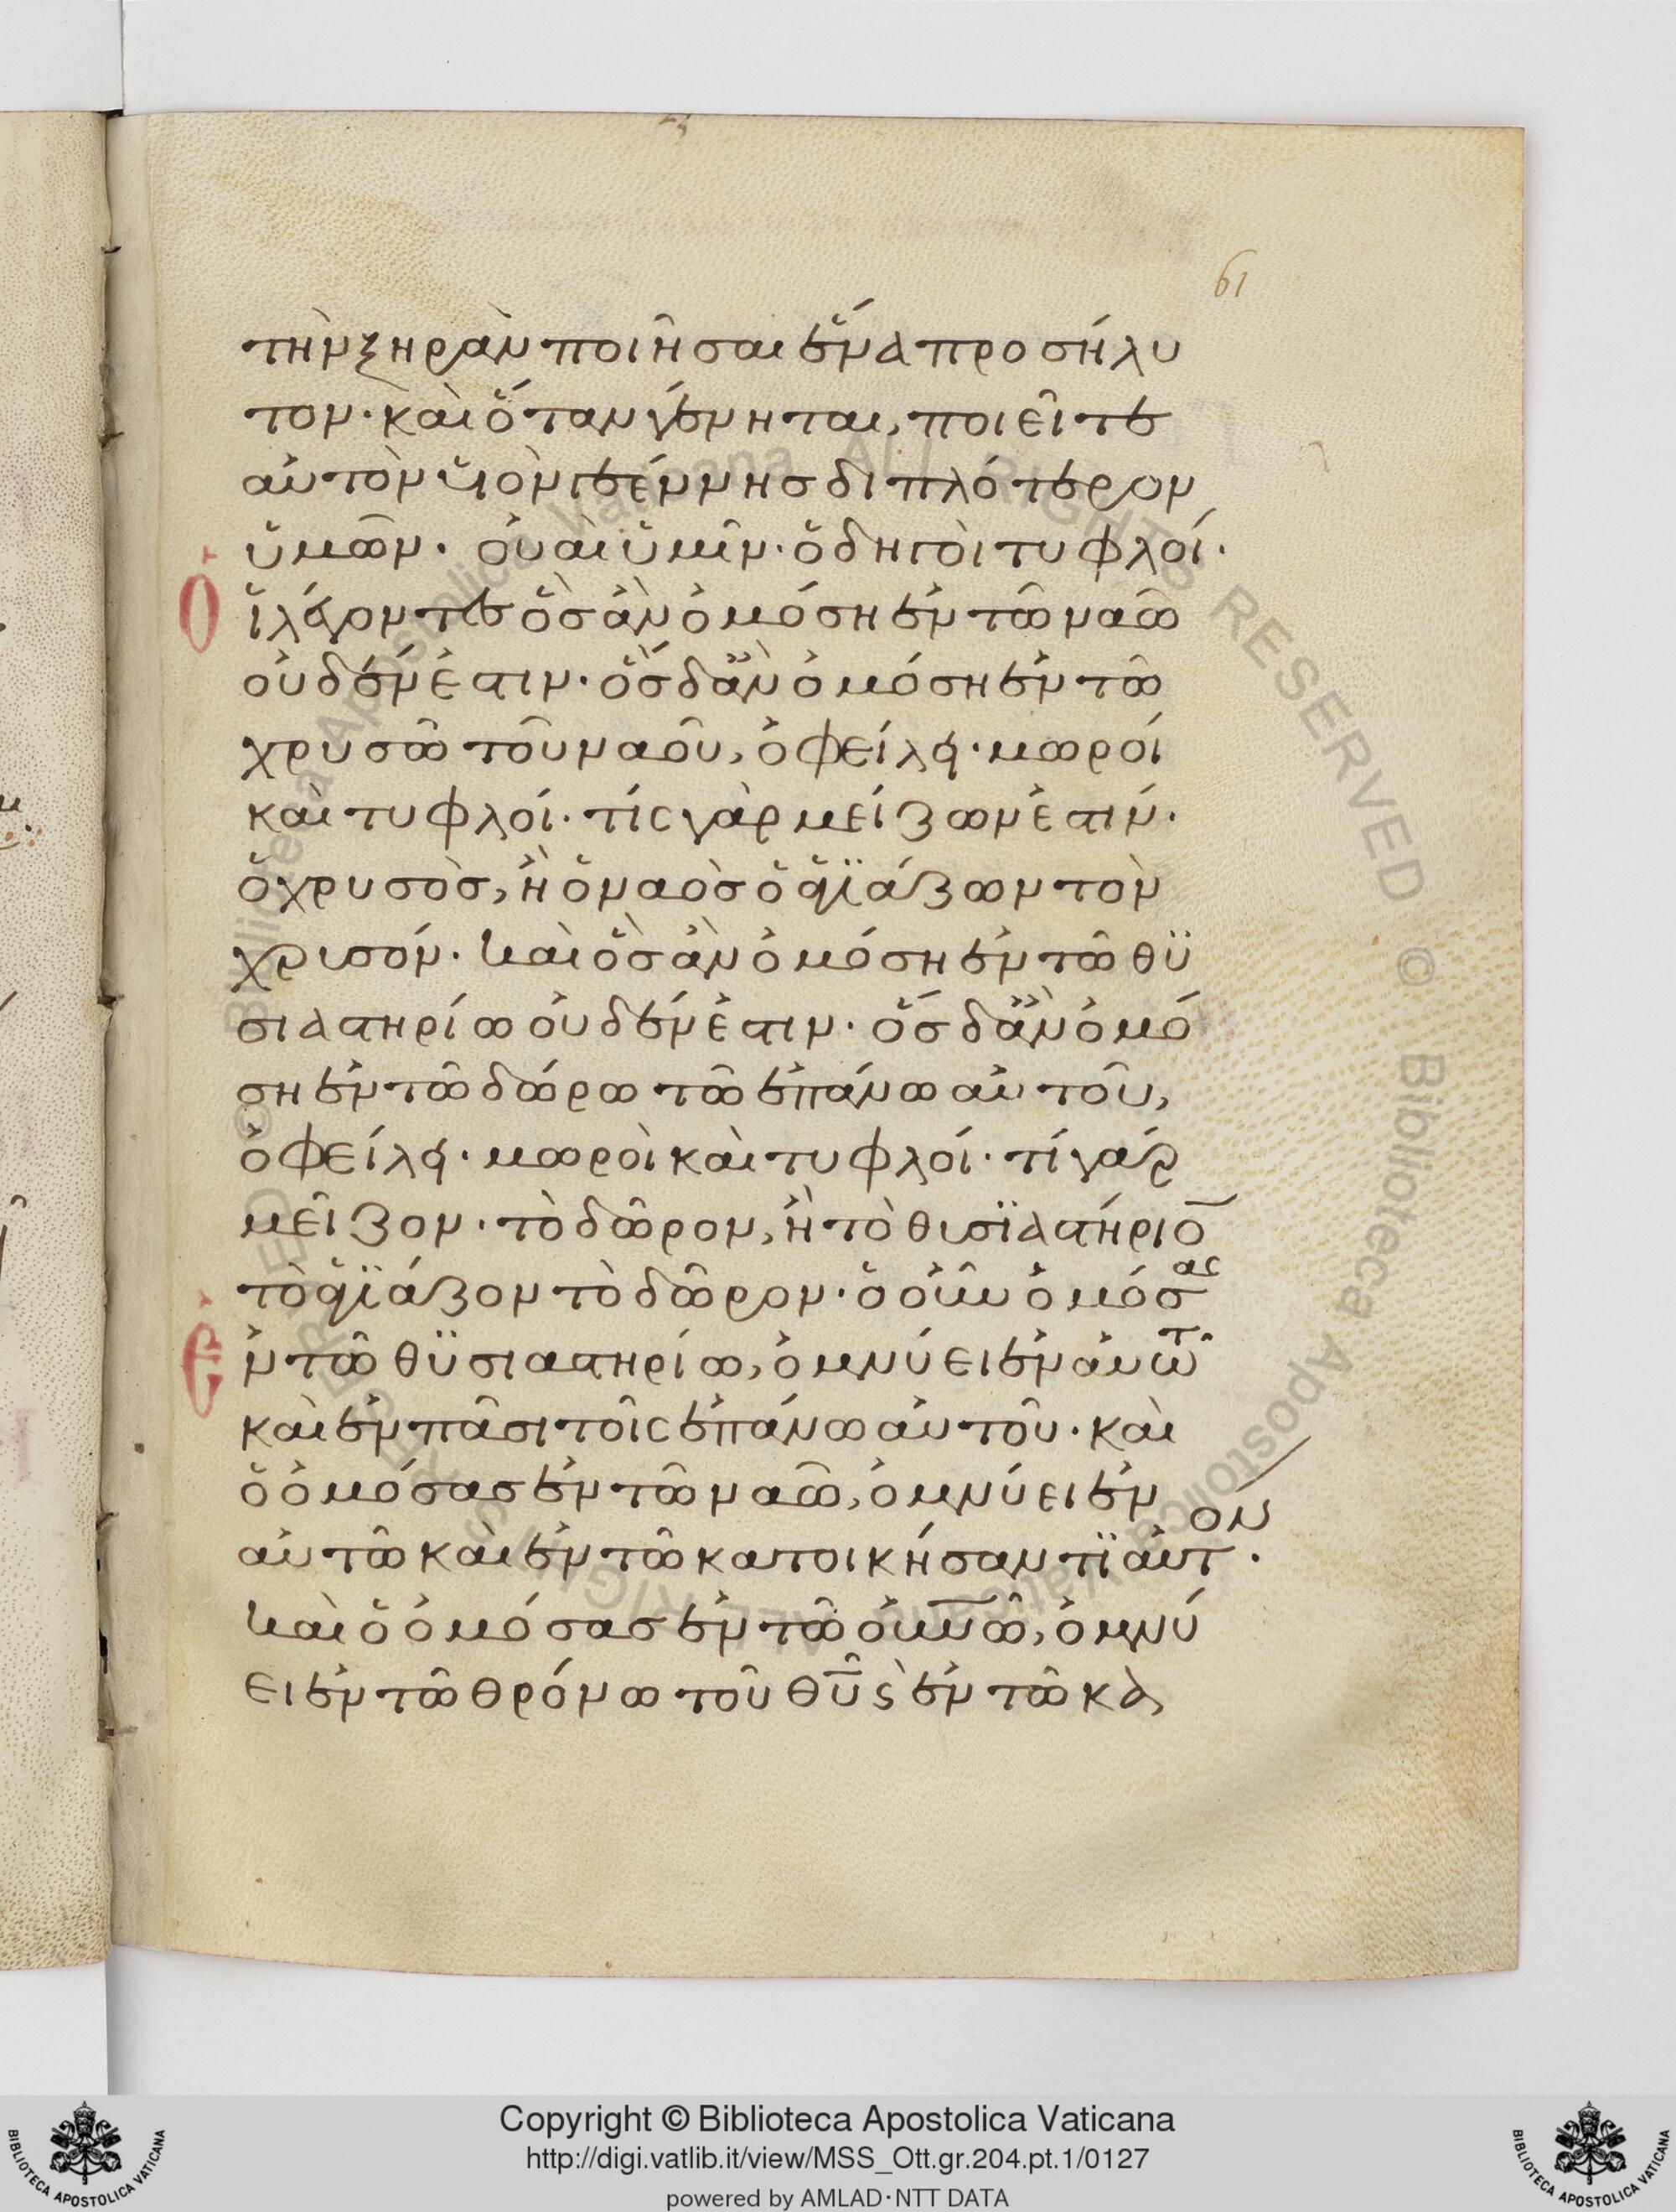 61
τὴν ξηρὰν ποιῆσαι ἕνα προσήλυ
τον· καὶ ὅταν γένηται, ποιεῖτε
αὐτὸν ὑιὸν γεέννησ διπλότερον
ὑμῶν· οὐαὶ ὑμῖν· ὁδηγοὶ τυφλοί·
Ὁἱ λέγοντες ὃσ ἂν ὀμόση ἐν τῶ ναῶ
οὐδέν ἐστιν· ὅσ δἂν ὀμόση ἐν τῶ
χρυσῶ τοῦ ναοῦ, ὀφείλει· μωροί
καὶ τυφλοί· τίς γὰρ μείζων ἐστίν·
ὁ χρυσὸσ, ἢ ὁ ναὸσ ὁ ἁγϊάζων τὸν
χρυσόν· καὶ ὃσ ἂν ὀμόση ἐν τῶ θϋ
σιαστηρίω οὐδέν ἐστιν· ὅσ δἂν ὀμό
ση ἐν τῶ δώρω τῶ ἐπάνω αὐτοῦ,
ὀφείλει· μωροὶ καὶ τυφλοί· τί γάρ
μεῖζον· τὸ δῶρον, ἢ τὸ θυσϊαστήριο̅
τὸ ἁγϊάζον τὸ δῶρον· ὁ οὖν ὀμόσας
Ἐν τῶ θϋσιαστηρίω, ὀμνύει ἐν αὐτῶ
καὶ ἐν πᾶσι τοῖς ἐπάνω αὐτοῦ· καὶ
ὁ ὀμόσασ ἐν τῶ ναῶ, ὀμνύει ἐν
αὐτῶ καὶ ἐν τῶ κατοικήσαντϊ αὐτόν·
καὶ ὁ ὀμόσασ ἐν τῶ οὐ̅νῶ, ὀμνύ
ει ἐν τῶ θρόνω τοῦ θ̅υ̅ ϗ ἐν τῶ κα
Copyright © Biblioteca Apostolica Vaticana
http://digi.vatlib.it/view/MSS_Ott.gr.204.pt.1/0127
powered by AMLAD·NTT DATA
BIBLIOTECA APOSTOLICA VATICANA
BIBLIOTECA APOSTOLICA VATICANA